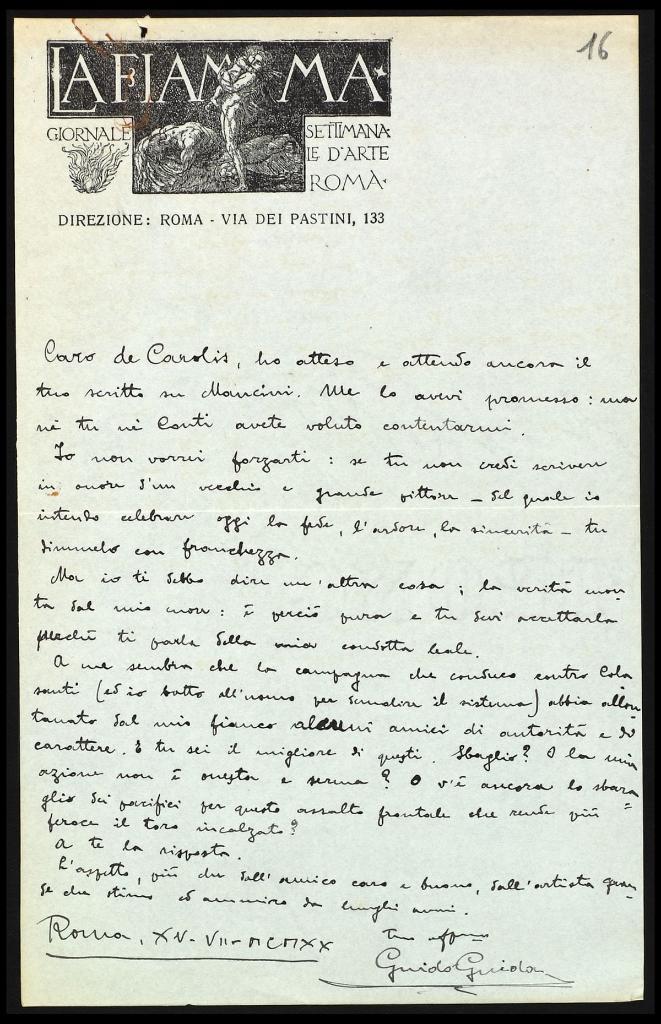 16
LA FIAMMA
GIORNALE SETTIMANA
LE D'ARTE
ROMA
DIREZIONE: ROMA - VIA DEI PASTINI, 133
Caro de Carolis, ho atteso e attendo ancora il
tuo scritto su Mancini. Me lo avevi promesso: ma
nè tu nè Conti avete voluto contentarmi.
Io non vorrei forzarti: se tu non credi scrivere
in onore d'un vecchio e grande pittore – del quale io
intendo celebrare oggi la fede, l'ardore, la sincerità – tu
dimmelo con franchezza.
Ma io ti debbo dire un'altra cosa; la verità mon-
ta dal mio cuore: è perciò pura e tu devi accettarla
perchè ti parla della mia condotta leale.
A me sembra che la campagna che conduco contro Cola
santi (ed io batto all'uomo per demolire il sistema) abbia allon
tanato dal mio fianco alcuni amici di autorità e di
carattere. E tu sei il migliore di questi. Sbaglio? O la mia
azione non è onesta e serena? O v'è ancora lo sbara=
glio dei pacifici per questo assalto frontale che rende più
feroce il toro incalzato?
A te la risposta.
L'aspetto, più che dall'amico caro e buono, dall'artista gran=
de che stimo ed ammiro da lunghi anni.
Roma, XV-VII-MCMXX
tuo affmo
Guido Guida